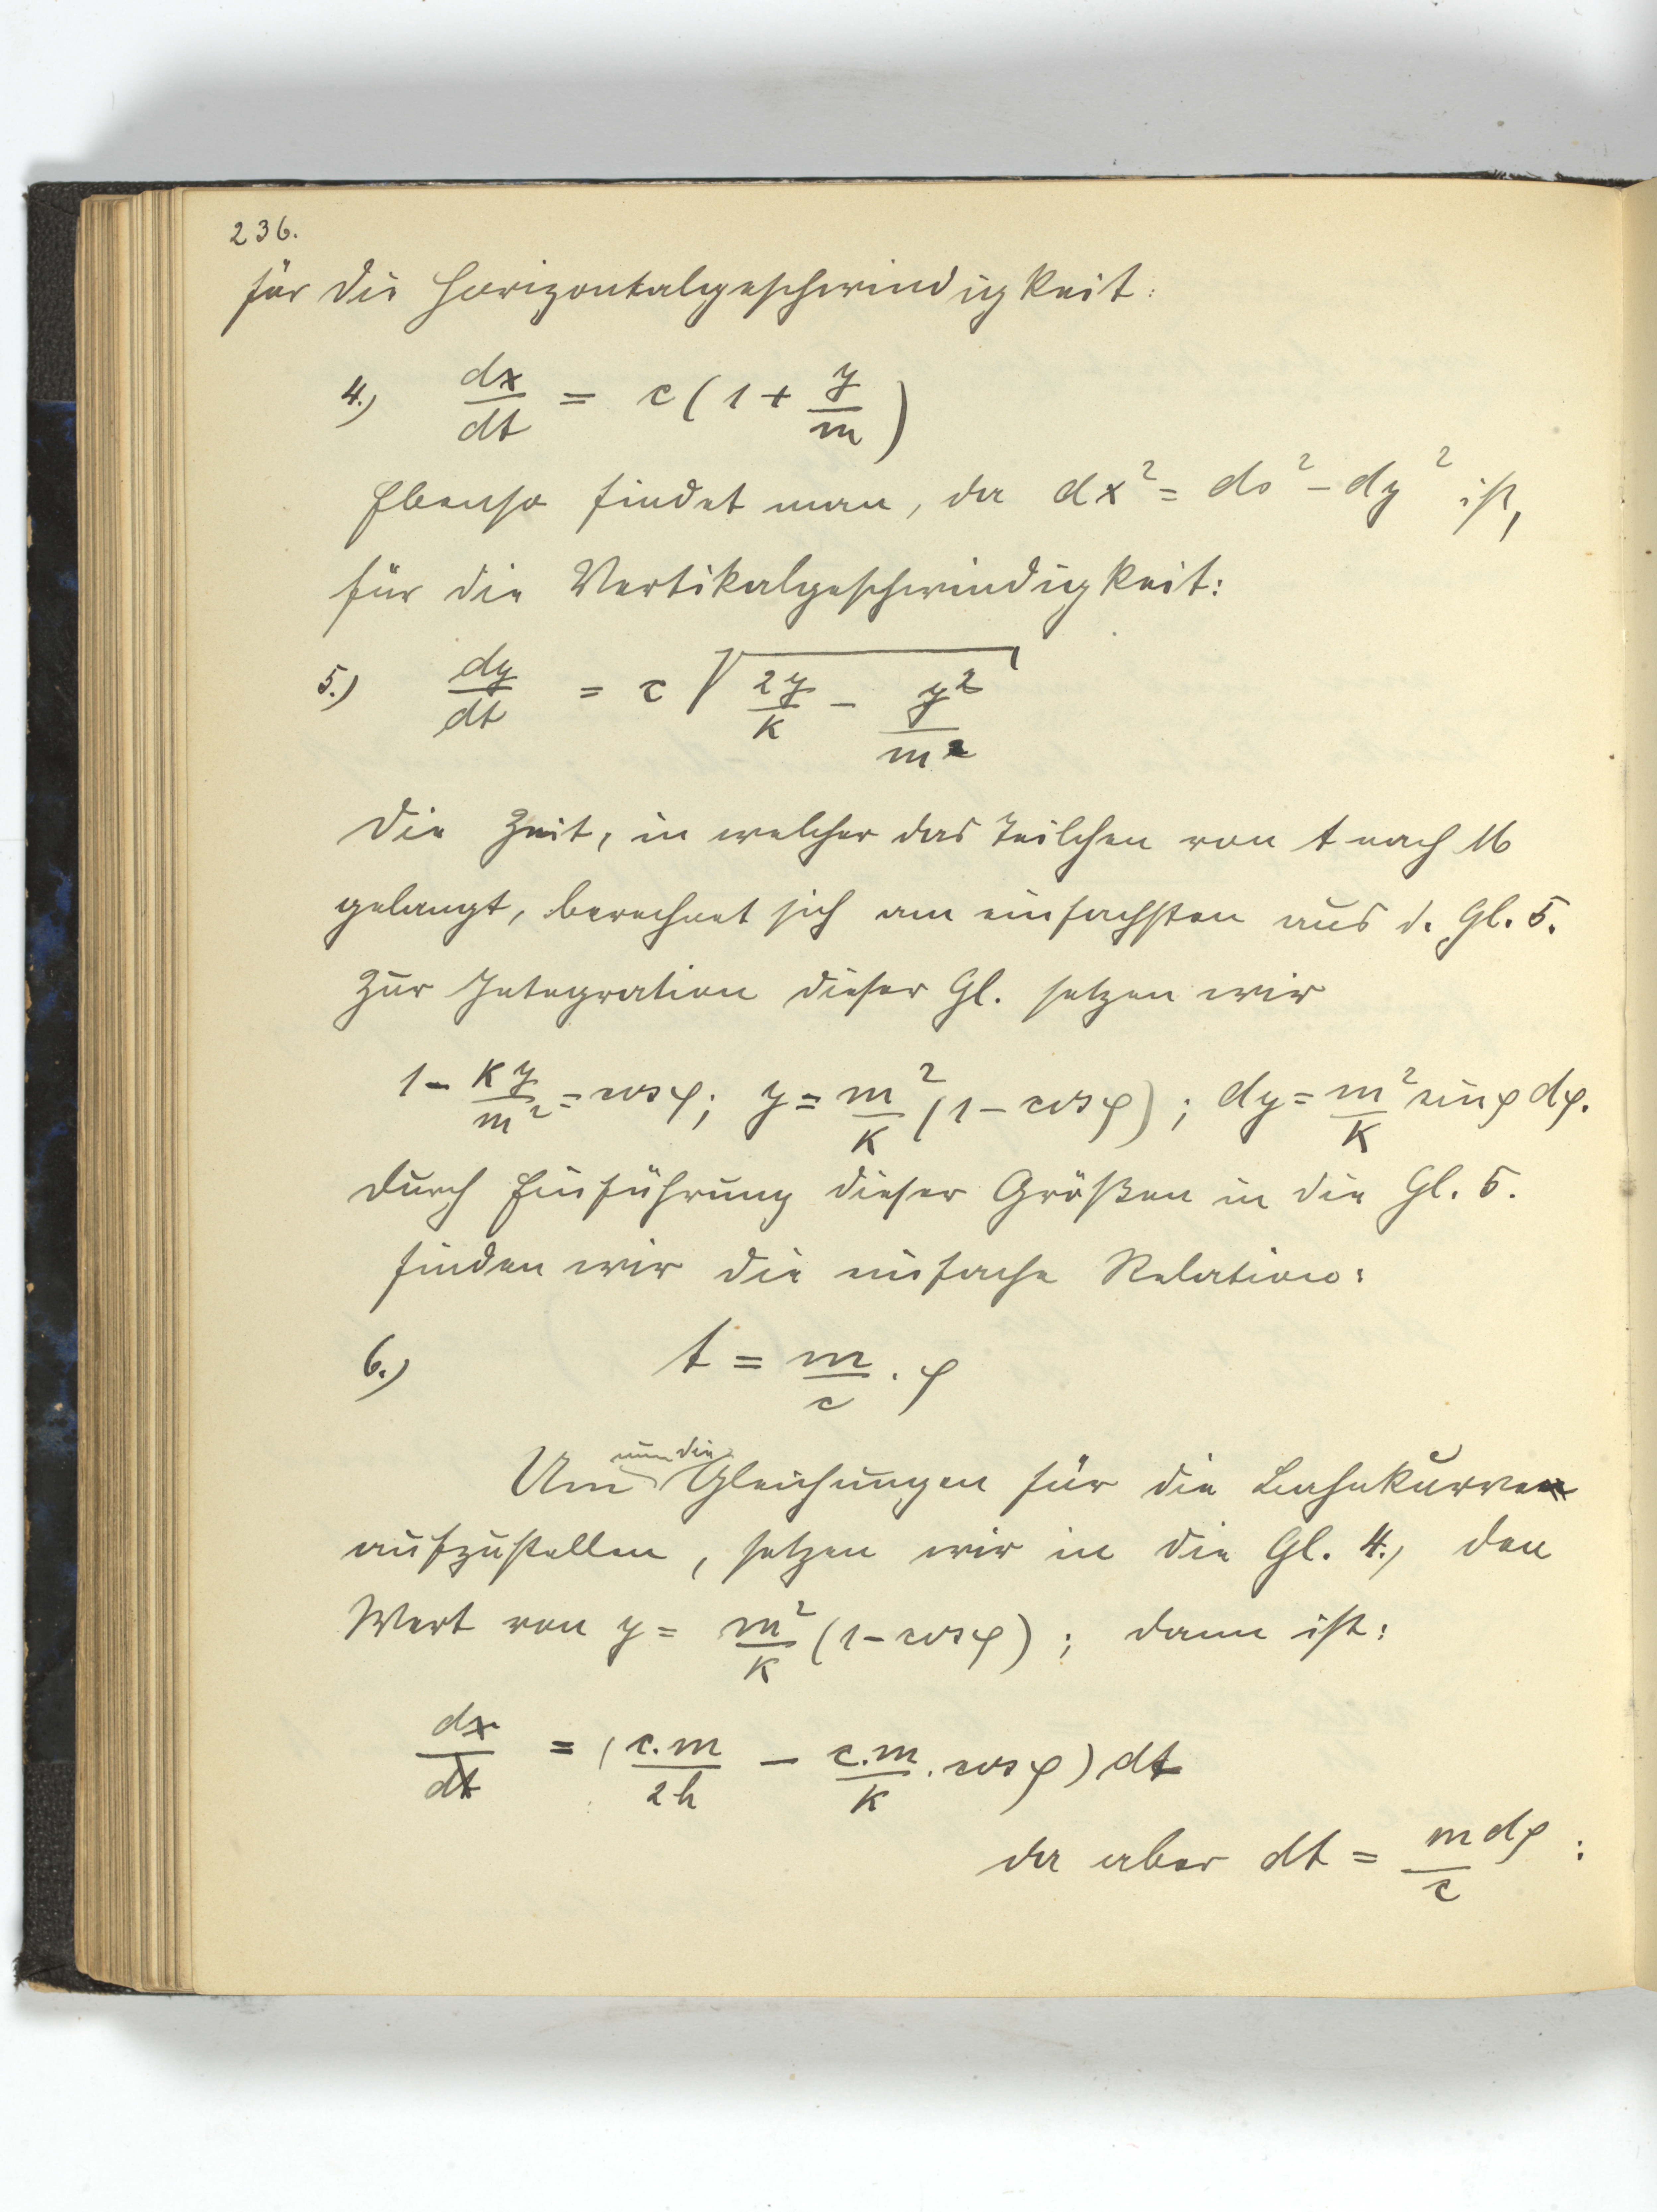 236.
für die Horizontalgeschwindigkeit:
4.) dx/dt = c (1 + y/m)
Ebenso findet man, da dx² = ds² - dy² ist,
für die Vertikalgeschwindigkeit:
5.) dy/dt = c √(2y/k - y²/m²)
Die Zeit, in welcher das Teilchen von A nach M
gelangt, berechnet sich am einfachsten aus d. Gl. 5.
Zur Integration dieser Gl. setzen wir
1 - ky/m² = cos φ; y = m²/k (1 - cos φ); dy = m²/k sin φ dφ.
Durch Einführung dieser Größen in die Gl. 5.
finden wir die einfache Relation:
6.) t = m/c . φ
Um nun die Gleichungen für die Bahnkurve
aufzustellen, setzen wir in die Gl. 4.) den
Wert von y = m²/k (1 - cos φ); dann ist:
dx/dt = (c.m/2h - c.m/k . cos φ) dt
da aber dt = m dφ/c :